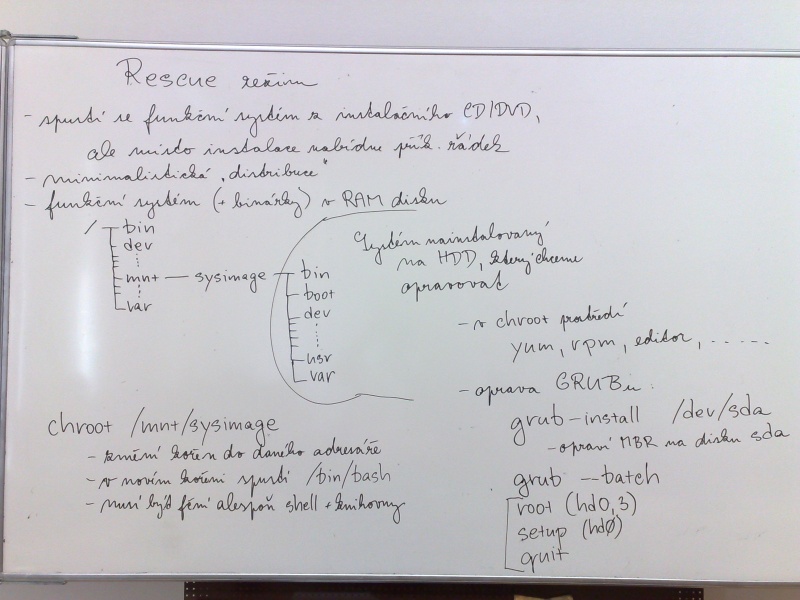 Rescue režim
- spustí se funkční systém z instalačního CD/DVD,
ale místo instalace nabídne přík. řádek
- minimalistická „distribuce“
- funkční systém (+ binárky) v RAM disku
/ bin
dev
mnt — sysimage
var
bin
boot
dev
usr
var
Systém nainstalovaný
na HDD, který chceme
opravovat
- v chroot prostředí
yum, rpm, editor, ......
- oprava GRUBu:
grub-install /dev/sda
- opraví MBR na disku sda
grub --batch
root (hd0,3)
setup (hd0)
quit
chroot /mnt/sysimage
- změní kořen do daného adresáře
- v novém kořeni spustí /bin/bash
- musí být alespoň shell + knihovny